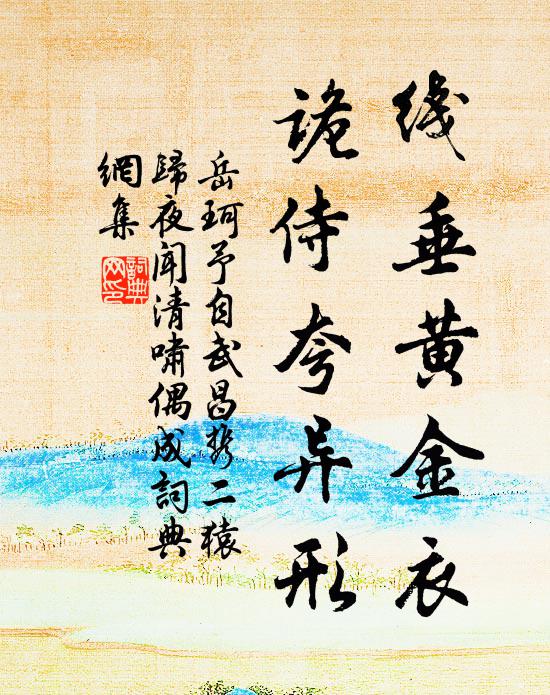 线垂黄金衣
诡侍夸异形
岳珂予自武昌携二猿
歸夜闻清啸偶成詞典
網集
詞典
网印